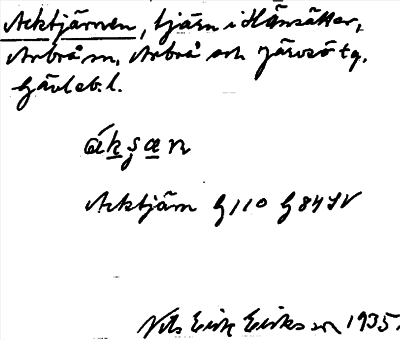 Acktjärnen, tjärn i Hänsätter,
Arbrå sn, Arbrå och Järvsö tg,
Gävleb. l.
áks̩an
Acktjärn G 110 G 84 SV
Nils Erik Eriksson 1935.